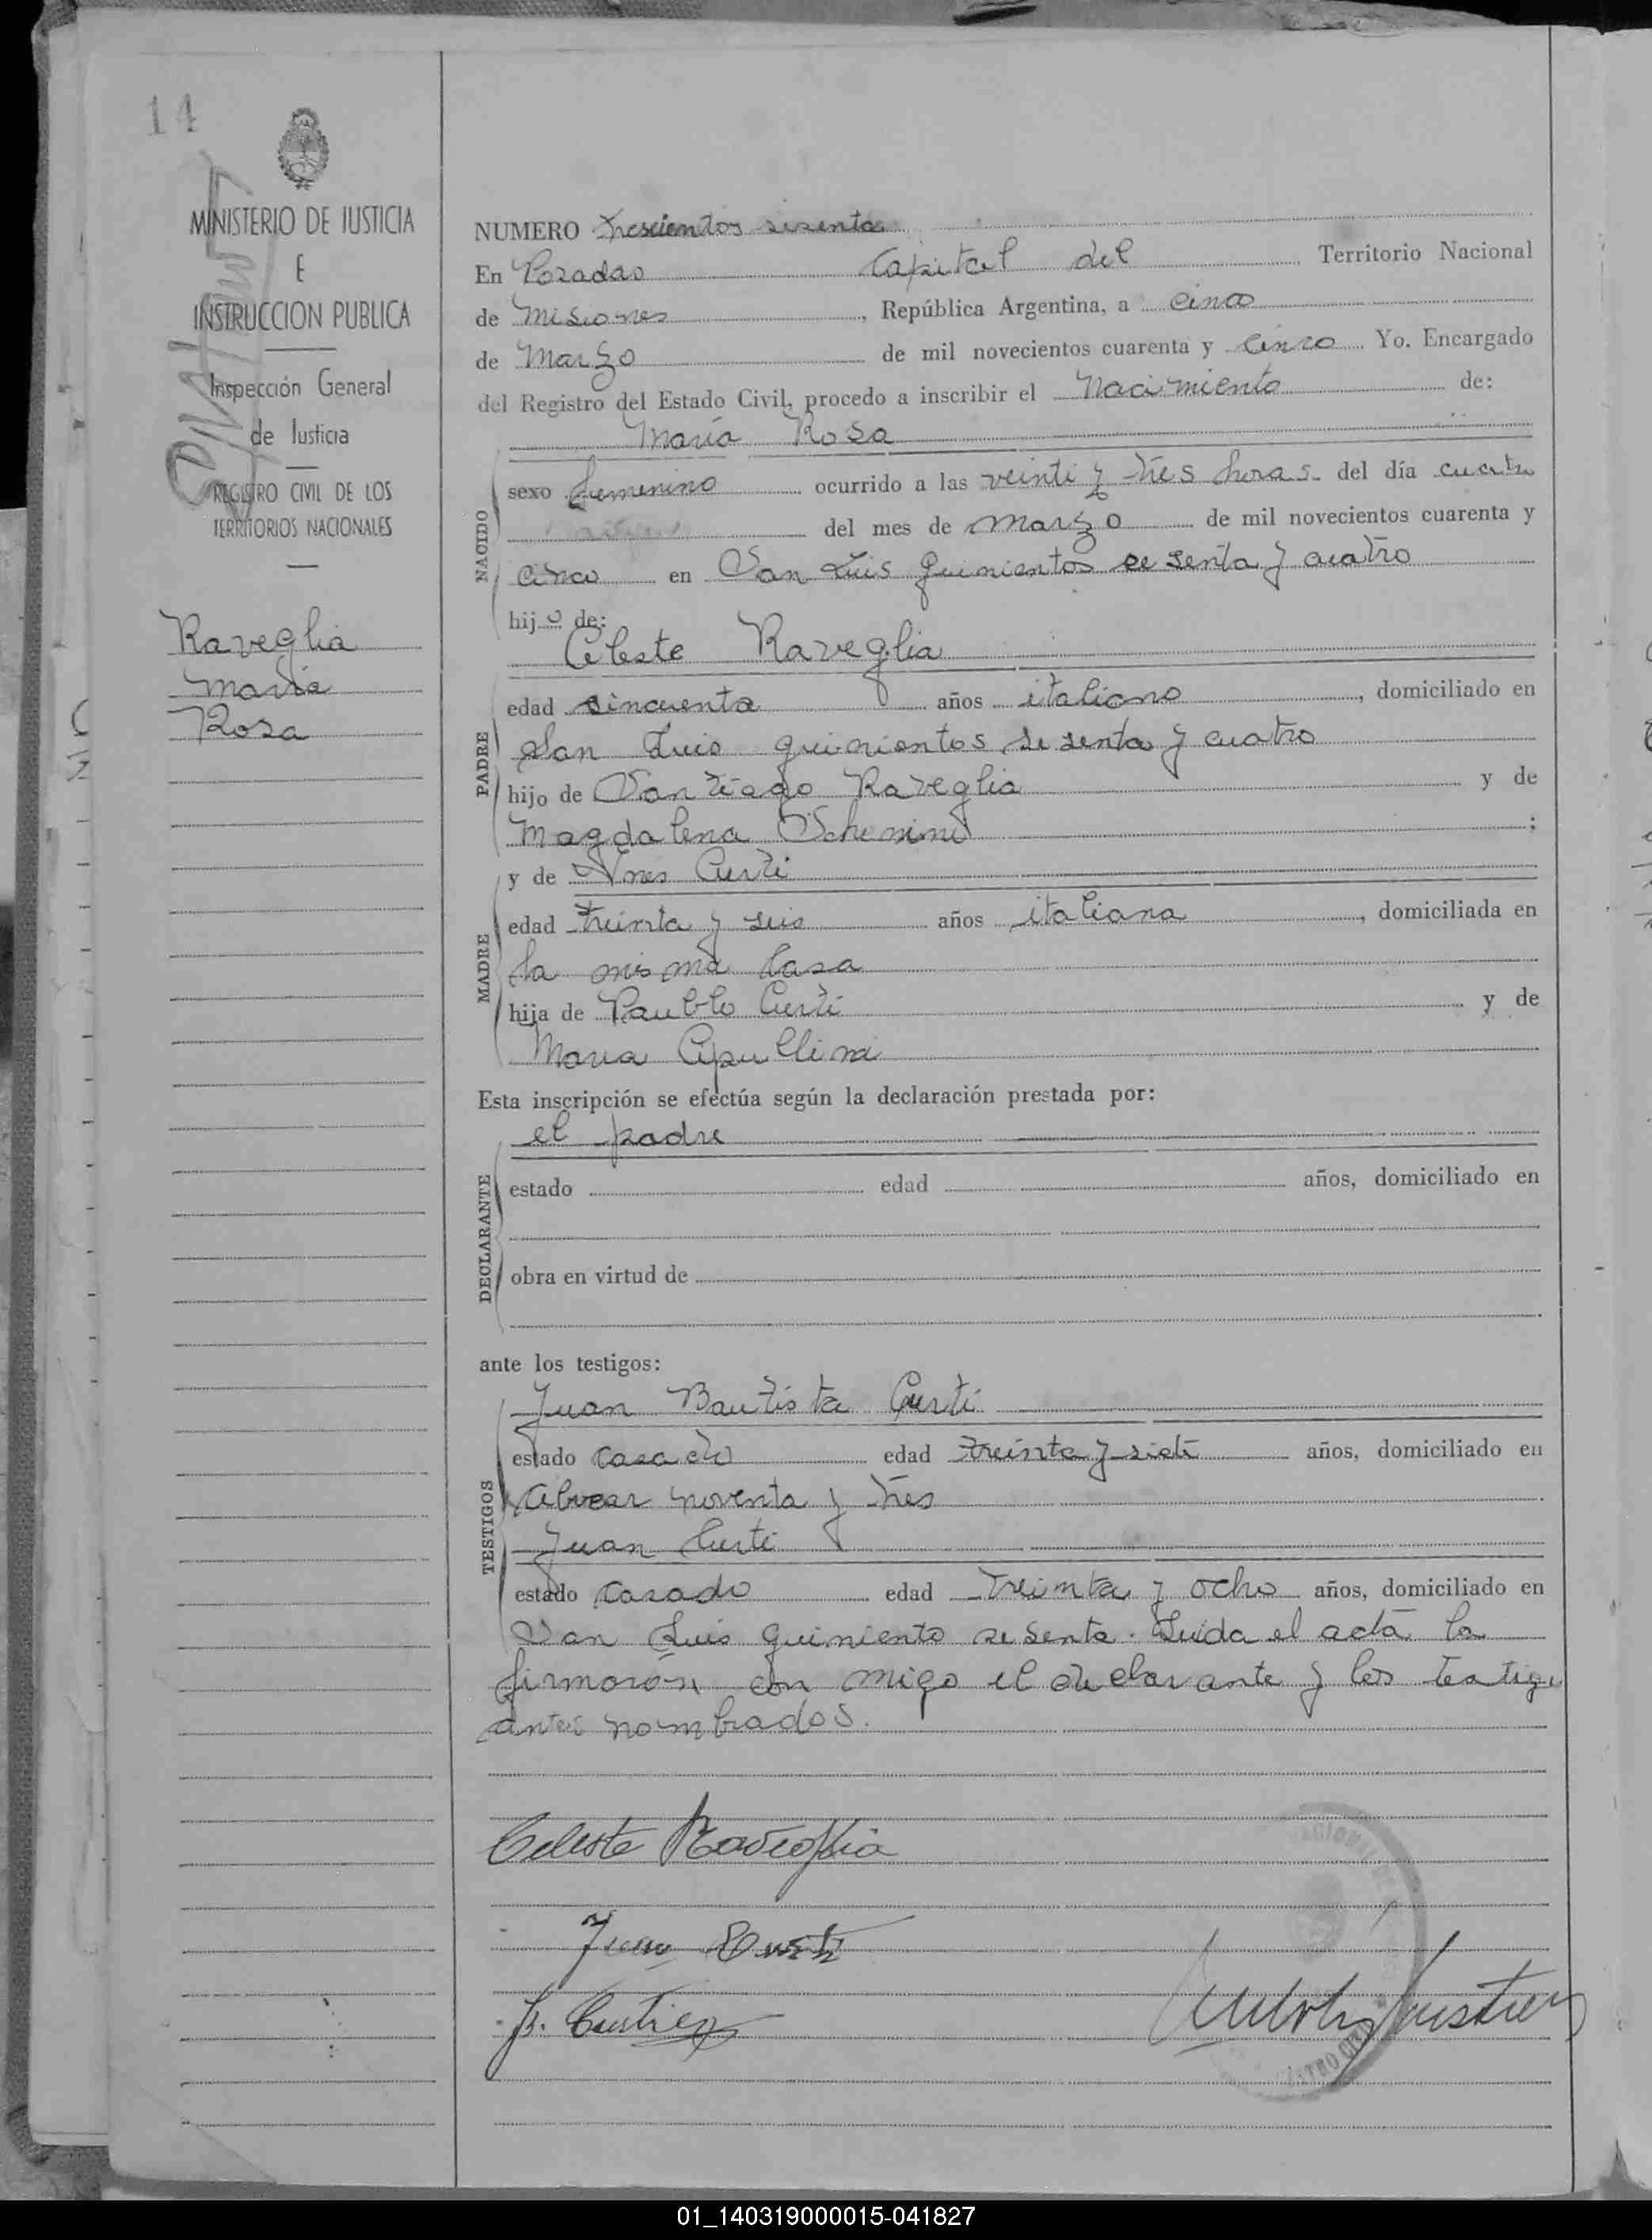 14
MINISTERIO DE JUSTICIA
E
INSTRUCCION PUBLICA
Inspección General
de Justicia
REGISTRO CIVIL DE LOS
TERRITORIOS NACIONALES
Raveglia
Maria
Rosa
NUMERO Trescientos sesenta
En Posadas Capital del Territorio Nacional
de Misiones, República Argentina, a cinco
de Marzo de mil novecientos cuarenta y cinco Yo. Encargado
del Registro del Estado Civil, procedo a inscribir el Nacimiento de:
María Rosa
NACIDO
sexo femenino ocurrido a las veinti y tres horas del día cuatro
del mes de Marzo de mil novecientos cuarenta y
cinco en San Luis quinientos sesenta y cuatro
hijo de:
Celeste Raveglia
PADRE
edad cincuenta años italiano, domiciliado en
San Luis quinientos sesenta y cuatro
hijo de Santiago Raveglia y de
Magdalena ;
y de Ines Curti
MADRE
edad treinta y seis años italiana, domiciliada en
la misma casa
hija de Paublo Curti y de
Maria
Esta inscripción se efectúa según la declaración prestada por:
el padre
DECLARANTE
estado edad años, domiciliado en
obra en virtud de
ante los testigos:
Juan Bautista Curti
TESTIGOS
estado casado edad treinta y siete años, domiciliado en
Alvear noventa y tres
Juan Curti
estado casado edad treinta y ocho años, domiciliado en
San Luis quiniento sesenta. Leida el acta la
firmarón con migo el declarante y los testigo
antes nombrados.
Celeste Raveglia
Juan Curti
01_140319000015-041827